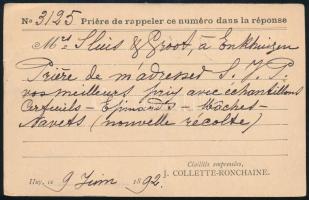 No 3125 Prière de rappeler ce numéro dans la réponse
Mrs Sluis & Groot, à Enkhuizen
Prière de m'adresser S. V. P.
vos meilleurs prix avec échantillons
Cerfeuils - Epinards - Mâches -
Navets (nouvelle récolte)
Civilités empressées,
Huy, le 9 Juin 1892. J. COLLETTE-RONCHAINE.